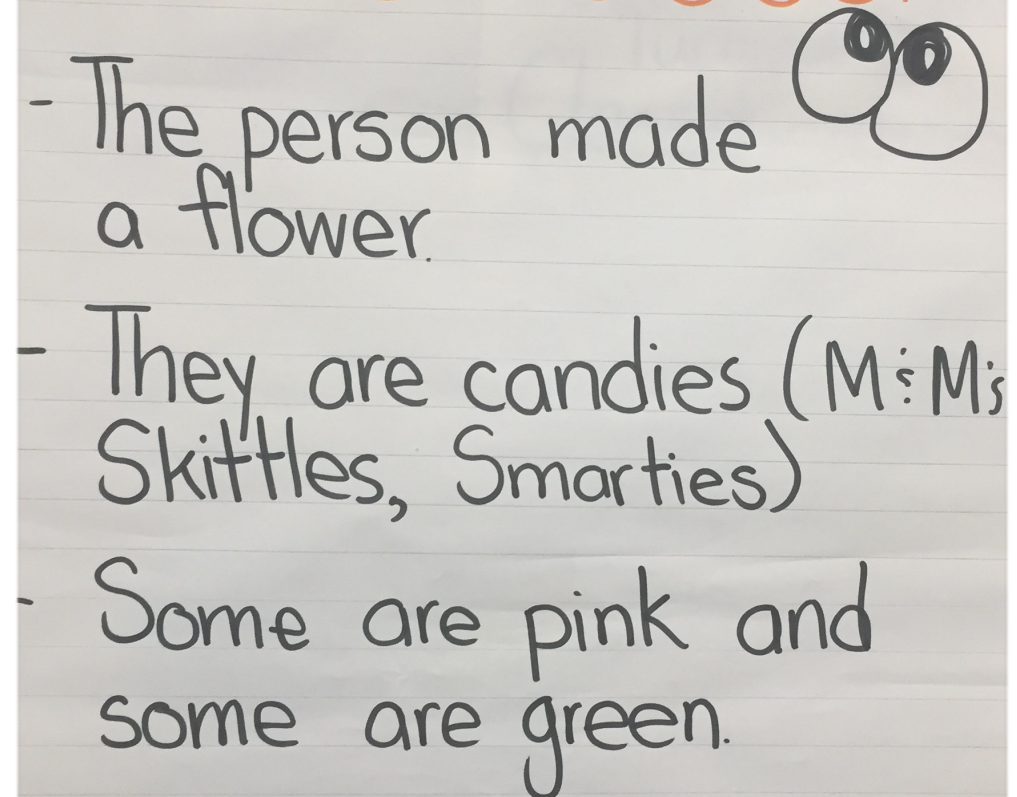 - The person made
a flower.
- They are candies (M&M's
Skittles, Smarties)
- Some are pink and
some are green.